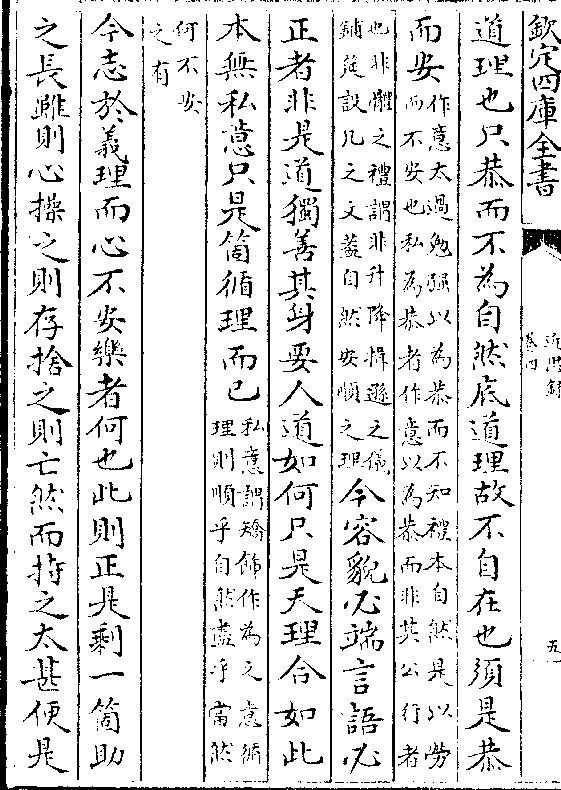 欽定四庫全書
近思録
卷四
五
道理也只恭而不為自然底道理故不自在也須是恭
而安
作意太過勉强以為恭而不知禮本自然是以勞
而不安也私為恭者作意以為恭而非其公行者
也非體之禮謂非升降揖遜之儀
鋪筵設几之文蓋自然安順之理
今容貌必端言語必
正者非是道獨善其身要人道如何只是天理合如此
本無私意只是箇循理而已
私意謂矯飾作為之意循
理則順乎自然盡乎當然
何不安
之有
今志於義理而心不安樂者何也此則正是剩一箇助
之長雖則心操之則存捨之則亡然而持之太甚便是